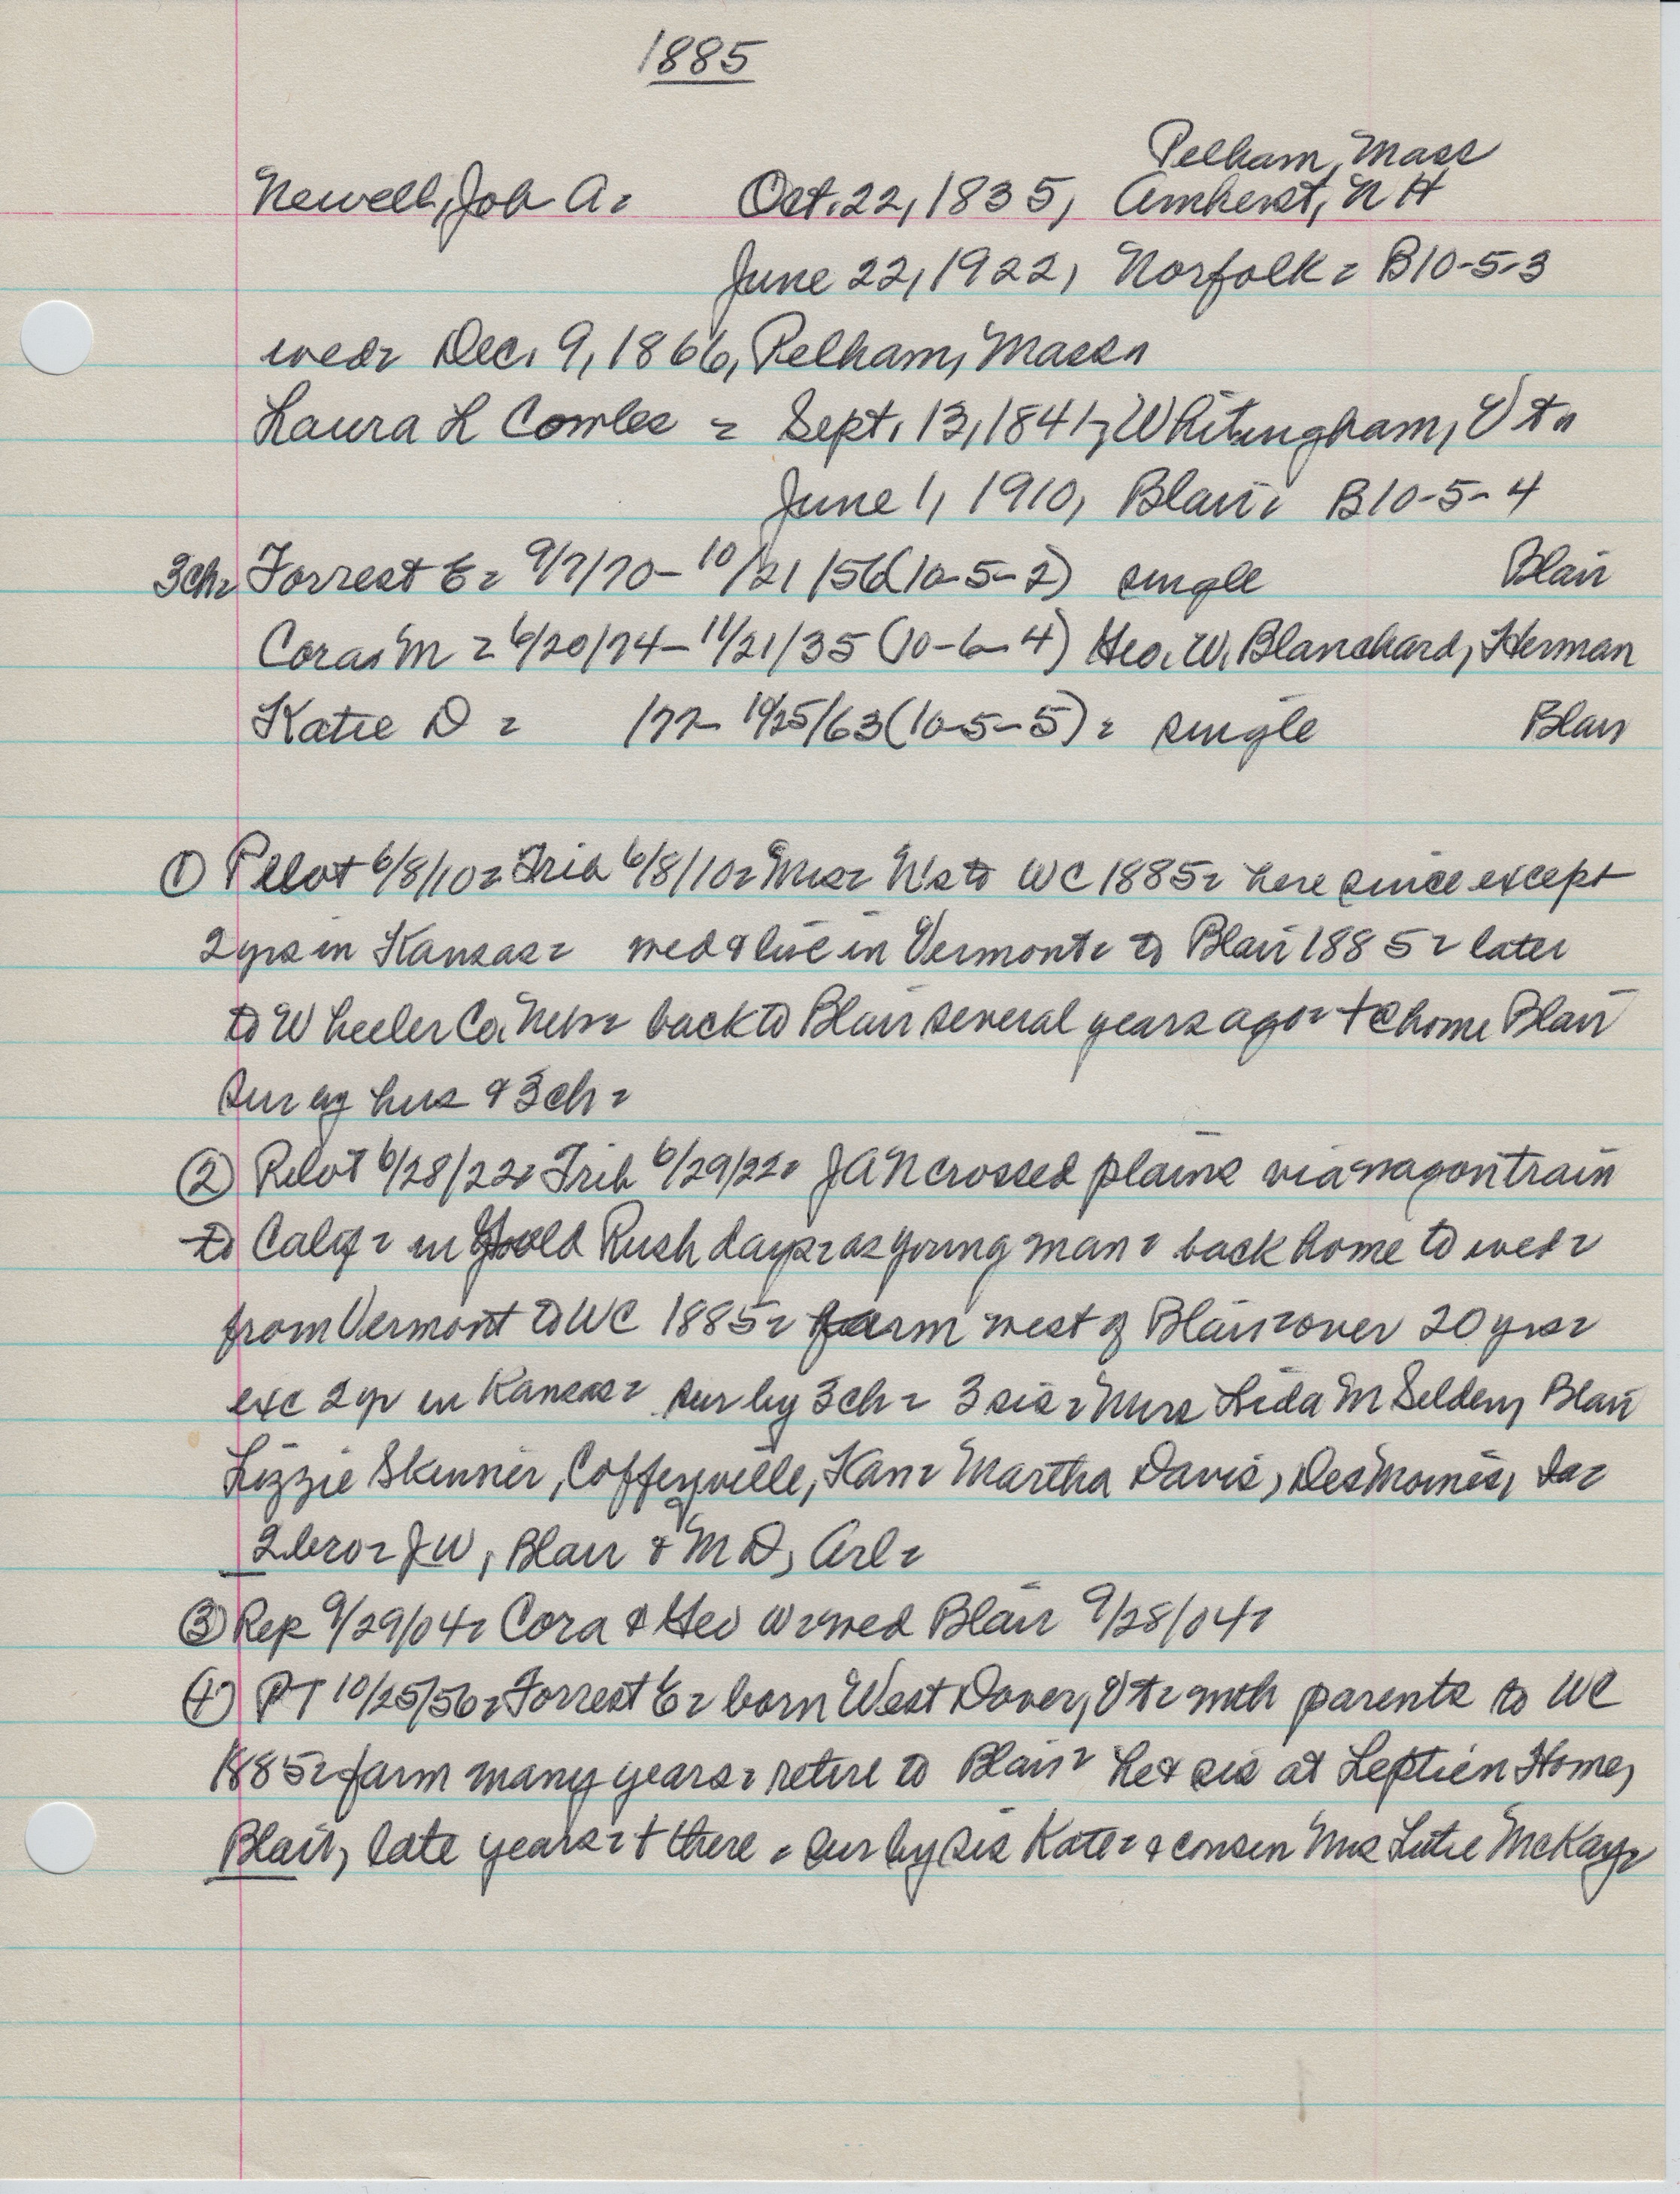 1885
Pelham, Mass
Newell, Job A. Oct. 22, 1835, Amherst, N H
June 22, 1922, Norfolk = B10-5-3
wed= Dec. 9, 1866, Pelham, Mass=
Laura L Cowles = Sept. 13, 1841, Whitingham, Vt=
June 1, 1910, Blair= B10-5-4
3ch= Forrest E= 9/7/70-10/21/56(10-5-2) single Blair
Cora M = 6/20/74-11/21/35 (10-6-4) Geo. W. Blanchard, Herman
Katie D = /77- /25/63(10-5-5) = single Blair
① Pilot 6/8/10= Trib 6/8/10= Mrs= N's to WC 1885= here since except
2yrs in Kansas= wed & live in Vermont= to Blair 1885= later
to Wheeler Co. Neb= back to Blair several years ago= + @ home Blair
sur by hus & 3ch=
② Pilot 6/28/22= Trib 6/29/22= JAN crossed plains via wagon train
to Calif= in Gold Rush days= as young man= back home to wed=
from Vermont to WC 1885= farm west of Blair= over 20 yrs=
exc 2 yr in Kansas= sur by 3ch= 3 sis= Mrs Lida M Selden, Blair
Lizzie Skinner, Coffeyville, Kan= Martha Davis, DesMoines, Ia=
2 bro= JW, Blair & M D, Arl=
③ Rep 9/29/04= Cora & Geo W= wed Blair 9/28/04=
④ PT 10/25/56= Forrest E= born West Dover, Vt= with parents to WC
1885= farm many years= retire to Blair= he & sis at Leptien Home,
Blair, late years= + there = sur by sis Kate= & cousin Mrs McKay=